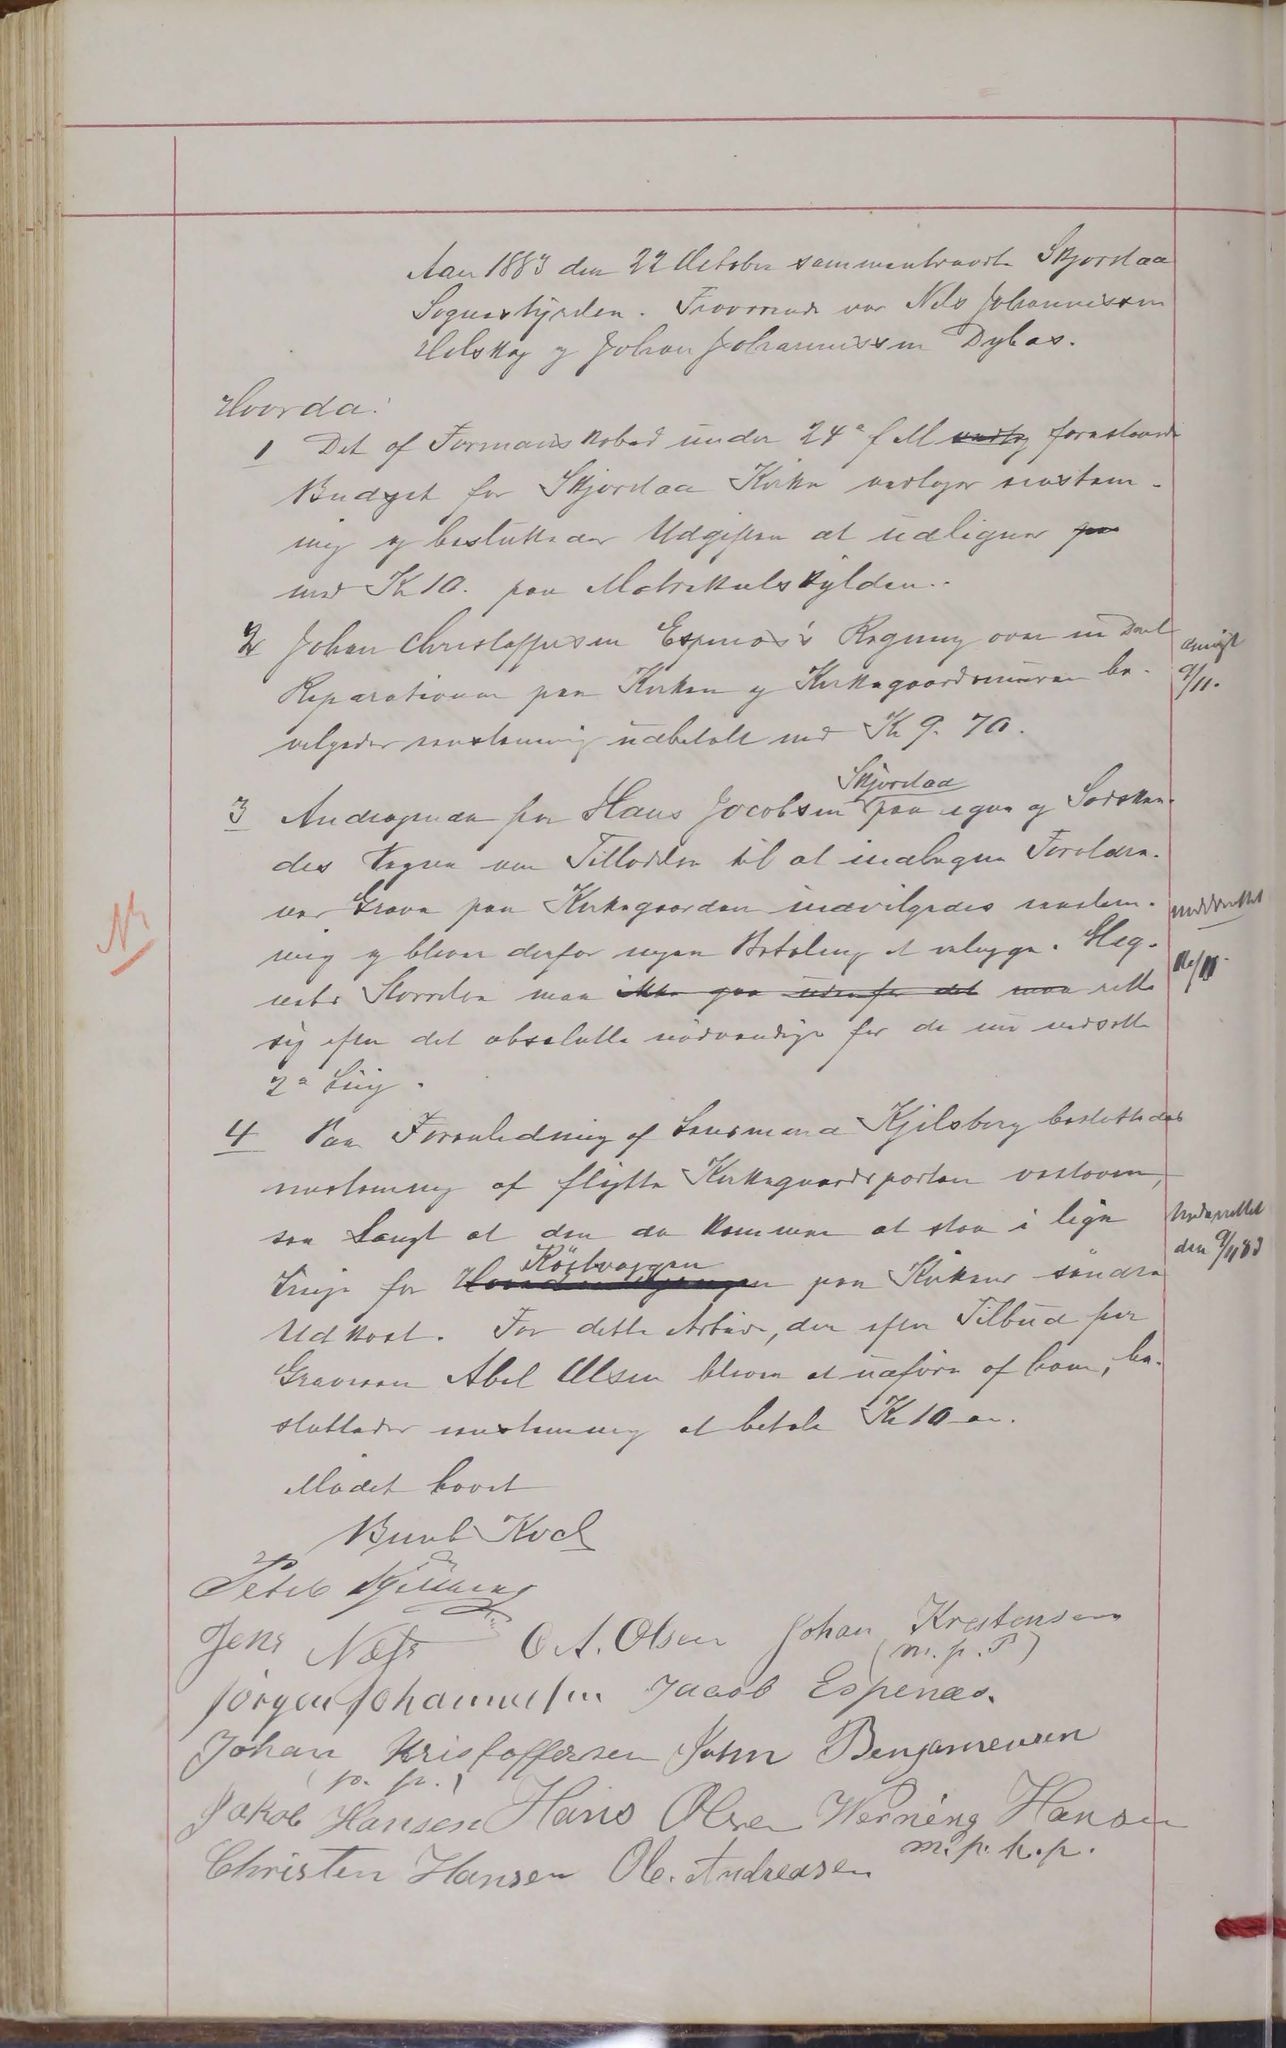 Aar 1883 den 22 October sammentraadte Skjordaa
Sognestyrelse. Fraværende var Nels Johannessen
og Johan Johannessen Dybas.
Hvorda:
1 Det af Formandskabed under 24de f M foreslaaede
Budget for Skjordaa Kirke vedtoges enstem-
mig og besluttedes Udgiften at udlignes
med Kr 10. paa Matrikulskylden.
2 Johan Christoffersen Espenæs's Regning over en Deel
Reparationer paa Kirken og Kirkegaardsmuren be-
vilgedes enstemmig udbetalt med Kr 9. 70.
anvist
9/11.
Skjordaa
3 Andragende fra Hans Jacobsen paa egne og Södsken-
des Vegne om Tilladelse til at indhegne Foreldre-
nes Grave paa Kirkegaarden indvilgedes enstem-
mig og bliver derfor ingen Betaling at erlegge. Heg-
nets Storrelse maa ikke gaa udenfor det maa rette
sig efter det absolutte nödvendige for de nu nedsatte
2de Liig.
Nr
4 Paa Foranledning af Lensmand Kjilsberg besluttedes
enstemmig at flytte Kirkegaardsporten vestover,
saa langt at den da kommer at staa i lige
Linje for paa Kirkens söndre
Udkast. For dette Arbeide, der efter Tilbud fra
Graveren Abel Olsen bliver at udföre af ham, be-
sluttedes enstemmig at betale Kr 10 –
Underrettet
den 9/11 83
Mödet hævet
Bernt Koch
Jens Næss O A. Olsen Johan Krestensen
(m. p. P)
Jörgen Johannessen Jacob Espenæs.
Johan Kristoffersen John Benjamensen
(p. p.)
Jakob Hansen Hans Olsen Werning Hansen
m. p. h. p.
Christen Hansen Ole. Andreasen